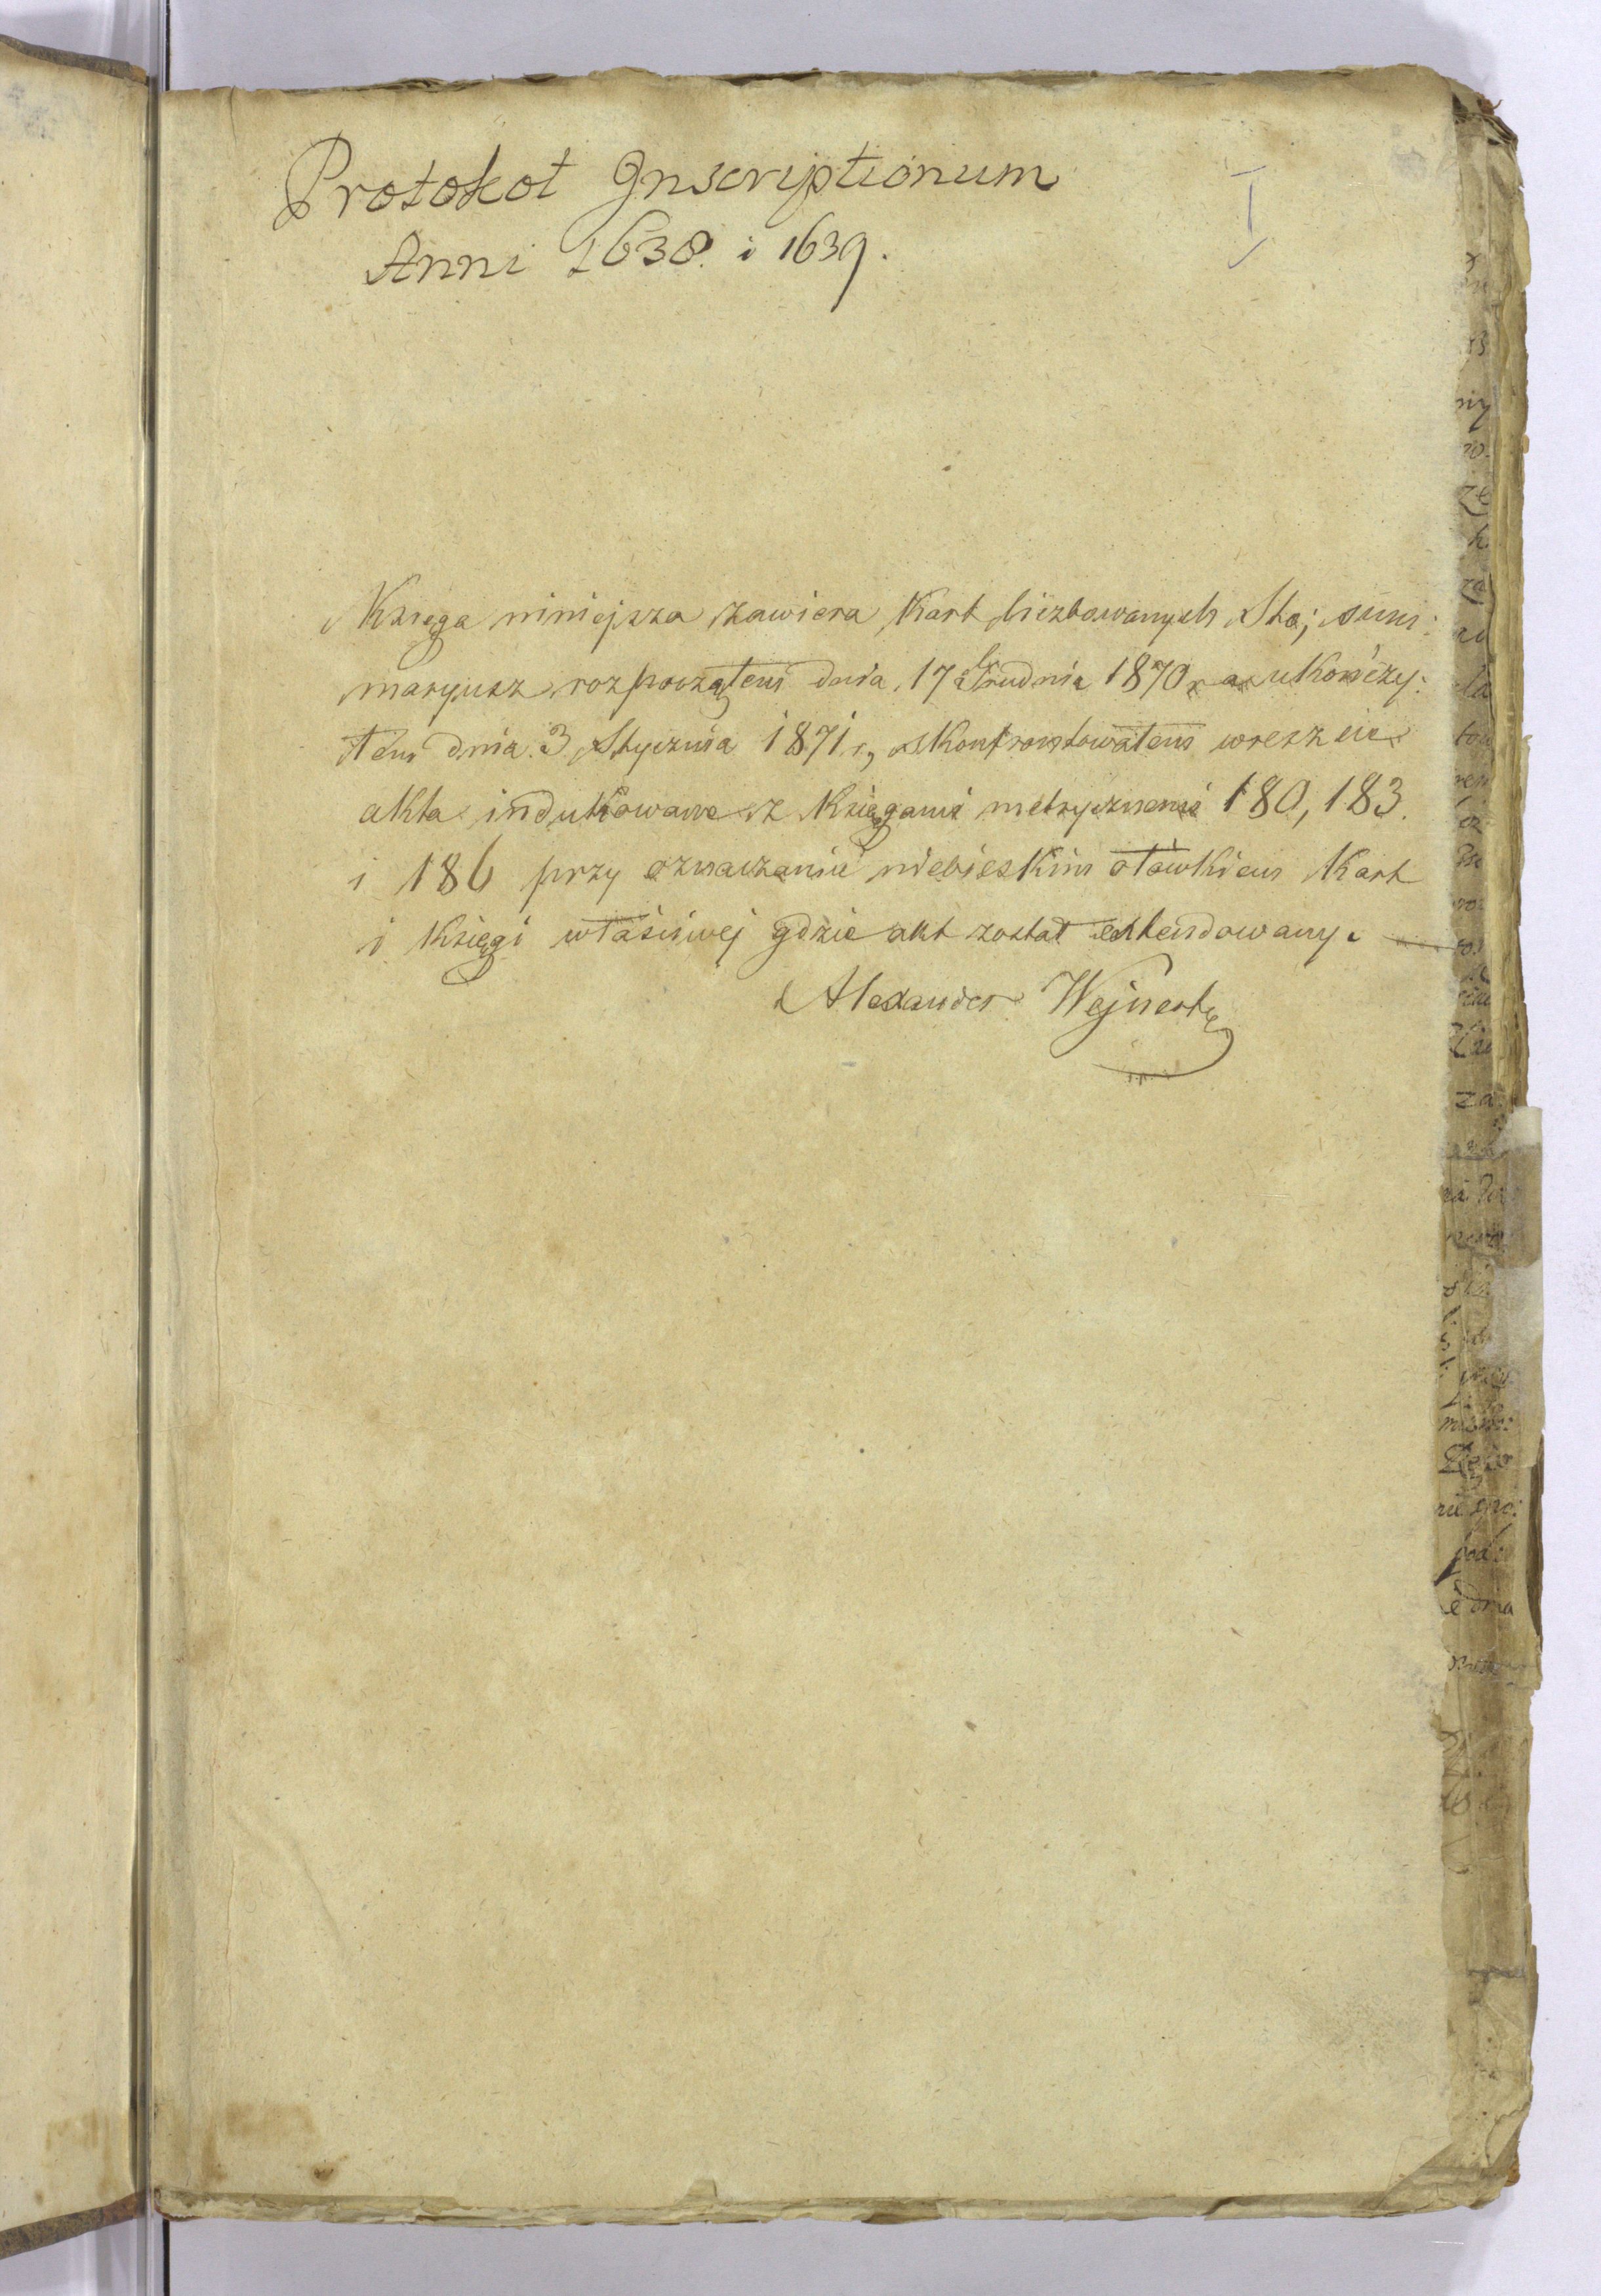 Protokoł Inscriptionum
Anni 1638. i 1639.
I
Księga niniejsza zawiera Kart liczbowanych Sto; sum:
maryusz rozpocząłem dnia 17 Grudnia 1870 r a ukończy:
łem dnia 3 Stycznia 1871 r, skonfrontowałem wreszcie
akta indukowane z Księgami metrycznemi 180, 183.
i 186 przy oznaczaniu niebieskim ołówkiem Kart
i Księgi właściwej gdzie akt został extendowany.
Alexander Wejnert